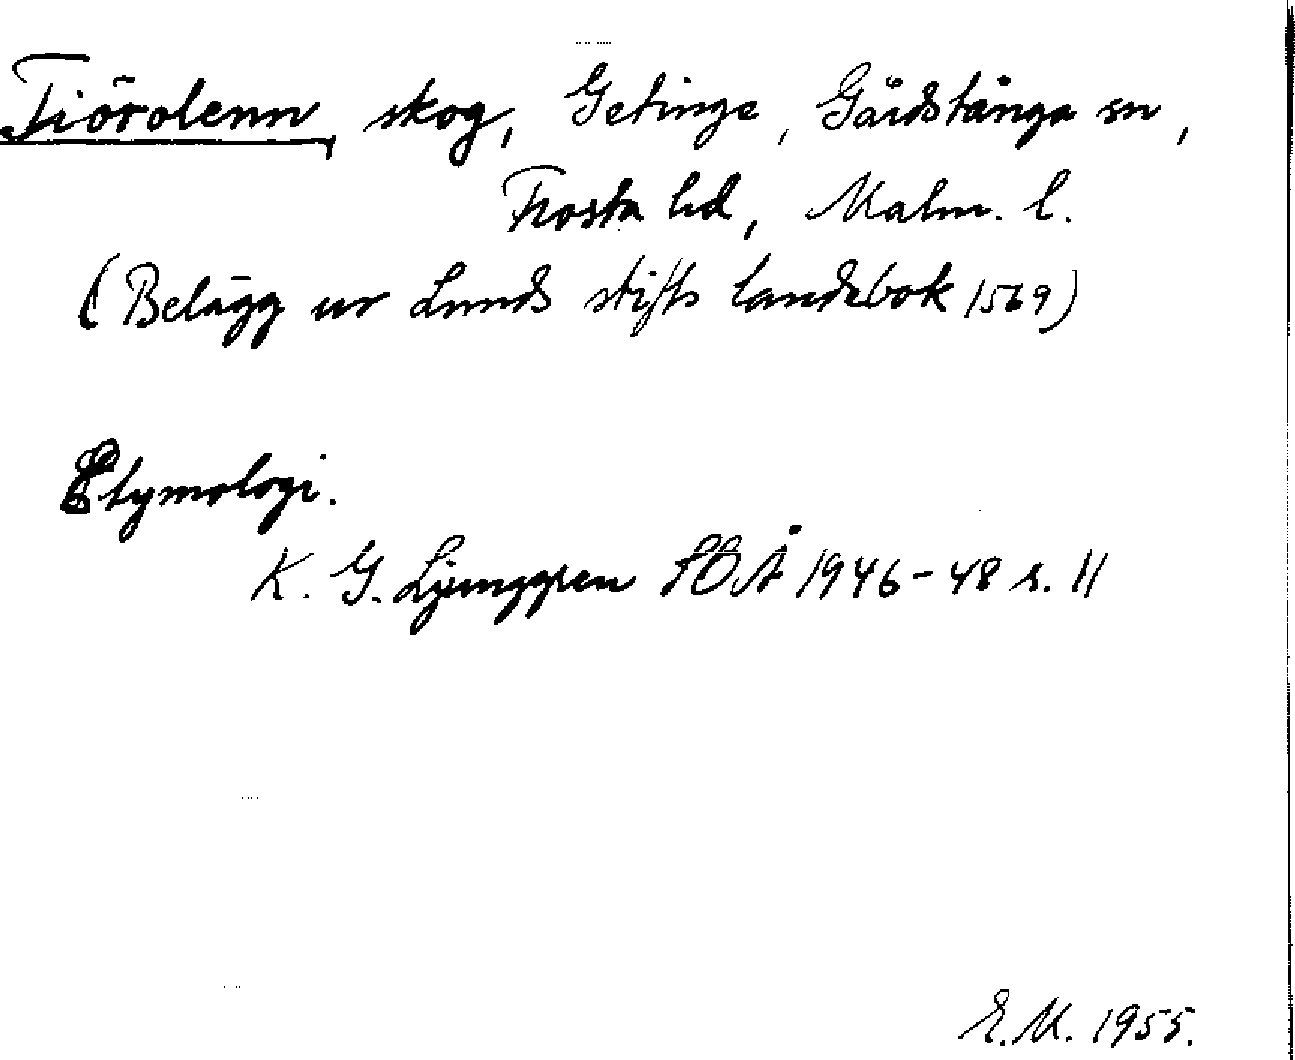 Tiörolenn, skog, Getinge, Gårdstånga sn,
Frosta hd, Malm. l.
(Belägg ur Lunds stifts landebok 1569)
Etymologi.
K. G. Ljunggren SOÅ 1946-48 s. 11
E.M. 1955.